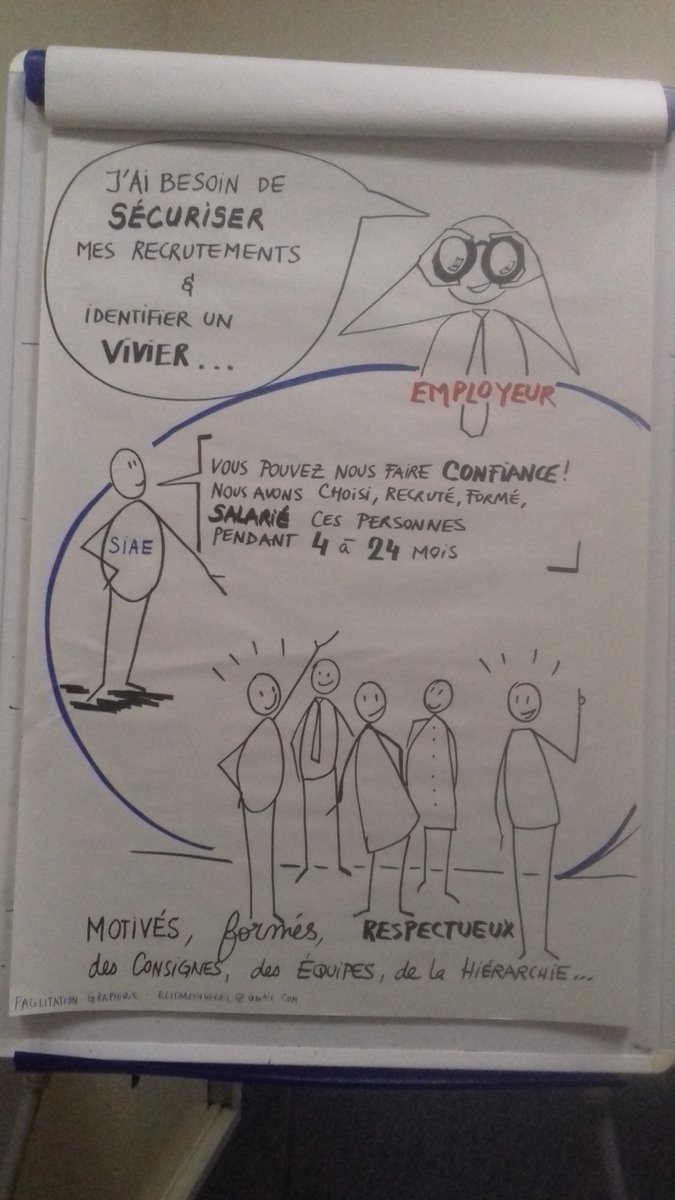 J'AI BESOIN DE
SÉCURISER
MES RECRUTEMENTS
&
IDENTIFIER UN
VIVIER...
EMPLOYEUR
VOUS POUVEZ NOUS FAIRE CONFIANCE!
NOUS AVONS CHOISI, RECRUTÉ, FORMÉ,
SALARIÉ CES PERSONNES
PENDANT 4 à 24 MOIS
SIAE
MOTIVÉS, formés, RESPECTUEUX
des CONSIGNES, des ÉQUIPES, de la HIÉRARCHIE...
FACILITATION GRAPHIQUE